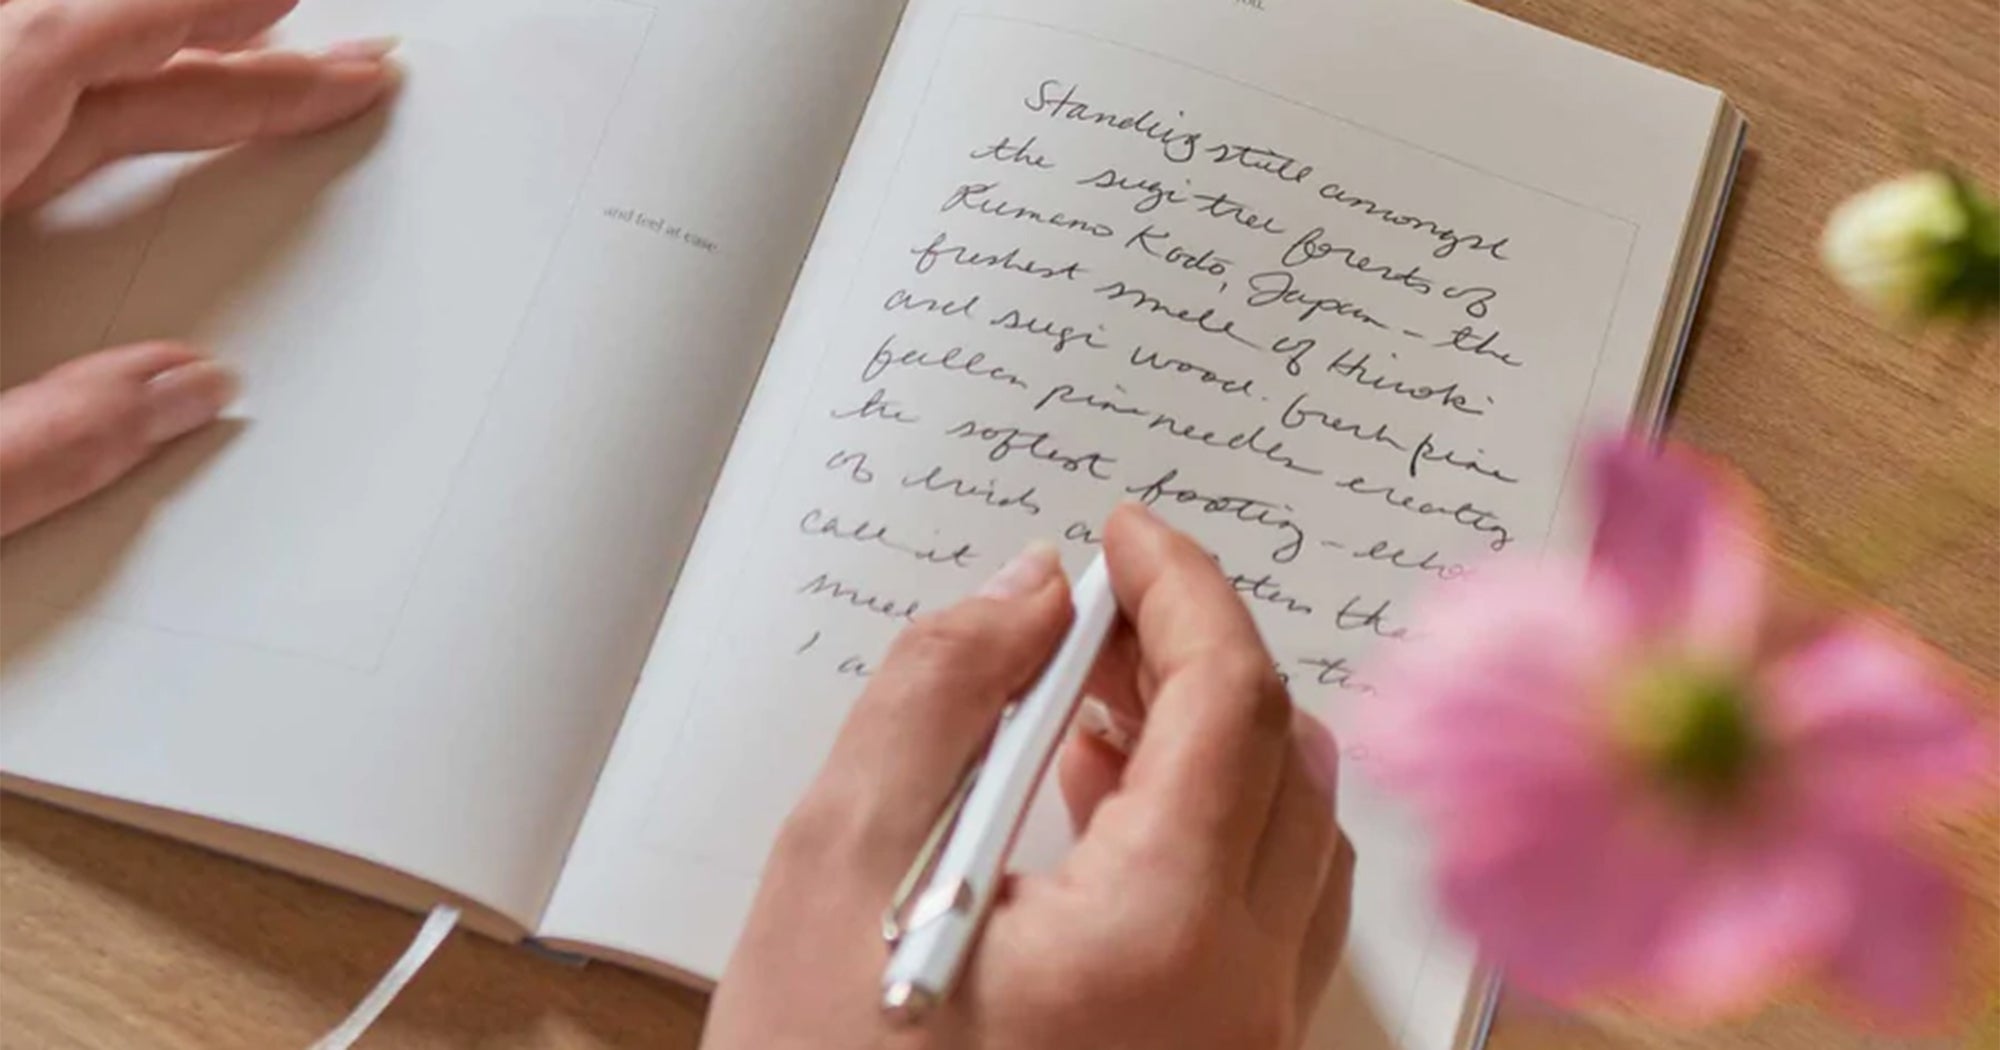 you.
and feel at ease
Standing still amongst
the sugi tree forests of
Kumano Kodo, Japan – the
freshest smell of Hinoki
and sugi wood. fresh pine
fallen pine needles creating
the softest footing – echo
of birds
call it
smell
I a